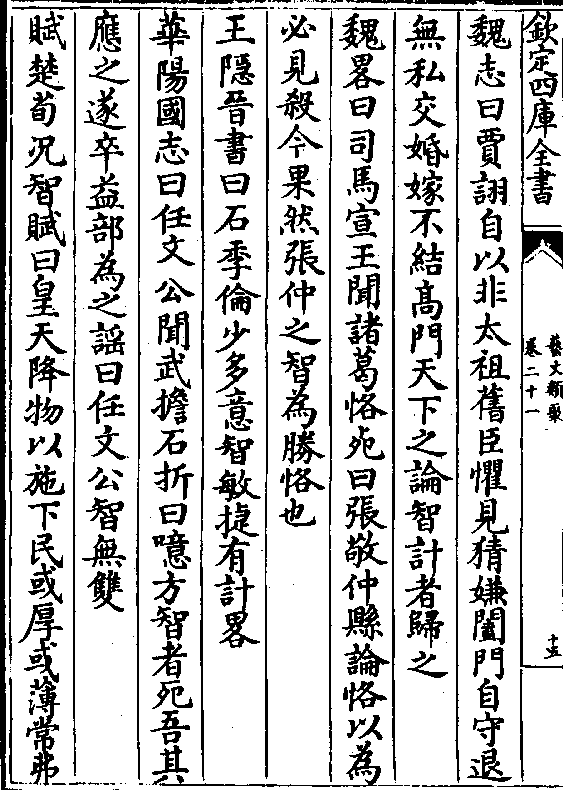 欽定四庫全書
藝文類聚
卷二十一
十五
魏志曰賈詡自以非太祖舊臣懼見猜嫌闔門自守退
無私交婚嫁不結髙門天下之論智計者歸之
魏畧曰司馬宣王聞諸葛恪死曰張敬仲縣論恪以為
必見殺今果然張仲之智為勝恪也
王隱晉書曰石季倫少多意智敏捷有計畧
華陽國志曰任文公聞武擔石折曰噫方智者死吾其
應之遂卒益部為之謡曰任文公智無雙
賦楚荀况智賦曰皇天降物以施下民或厚或薄常弗